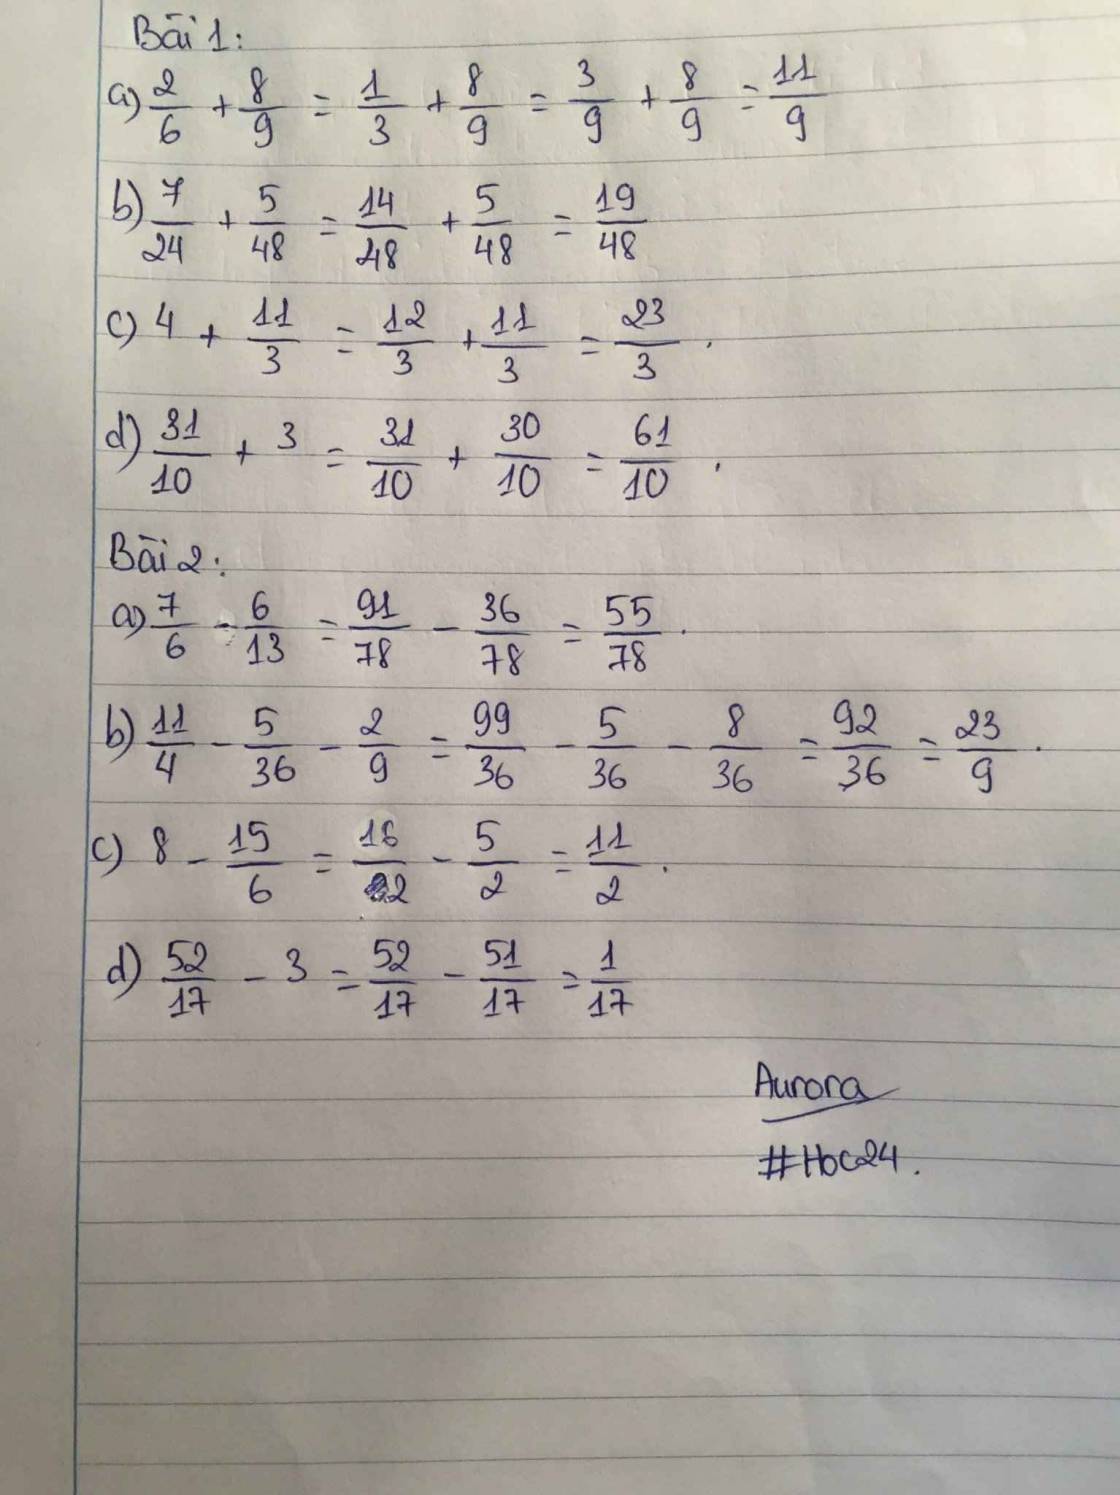 Bài 1:
a) 2/6 + 8/9 = 1/3 + 8/9 = 3/9 + 8/9 = 11/9
b) 7/24 + 5/48 = 14/48 + 5/48 = 19/48
c) 4 + 11/3 = 12/3 + 11/3 = 23/3 .
d) 31/10 + 3 = 31/10 + 30/10 = 61/10 .
Bài 2:
a) 7/6 - 6/13 = 91/78 - 36/78 = 55/78 .
b) 11/4 - 5/36 - 2/9 = 99/36 - 5/36 - 8/36 = 92/36 = 23/9 .
c) 8 - 15/6 = 16/2 - 5/2 = 11/2 .
d) 52/17 - 3 = 52/17 - 51/17 = 1/17
Aurora
#Hoc24.